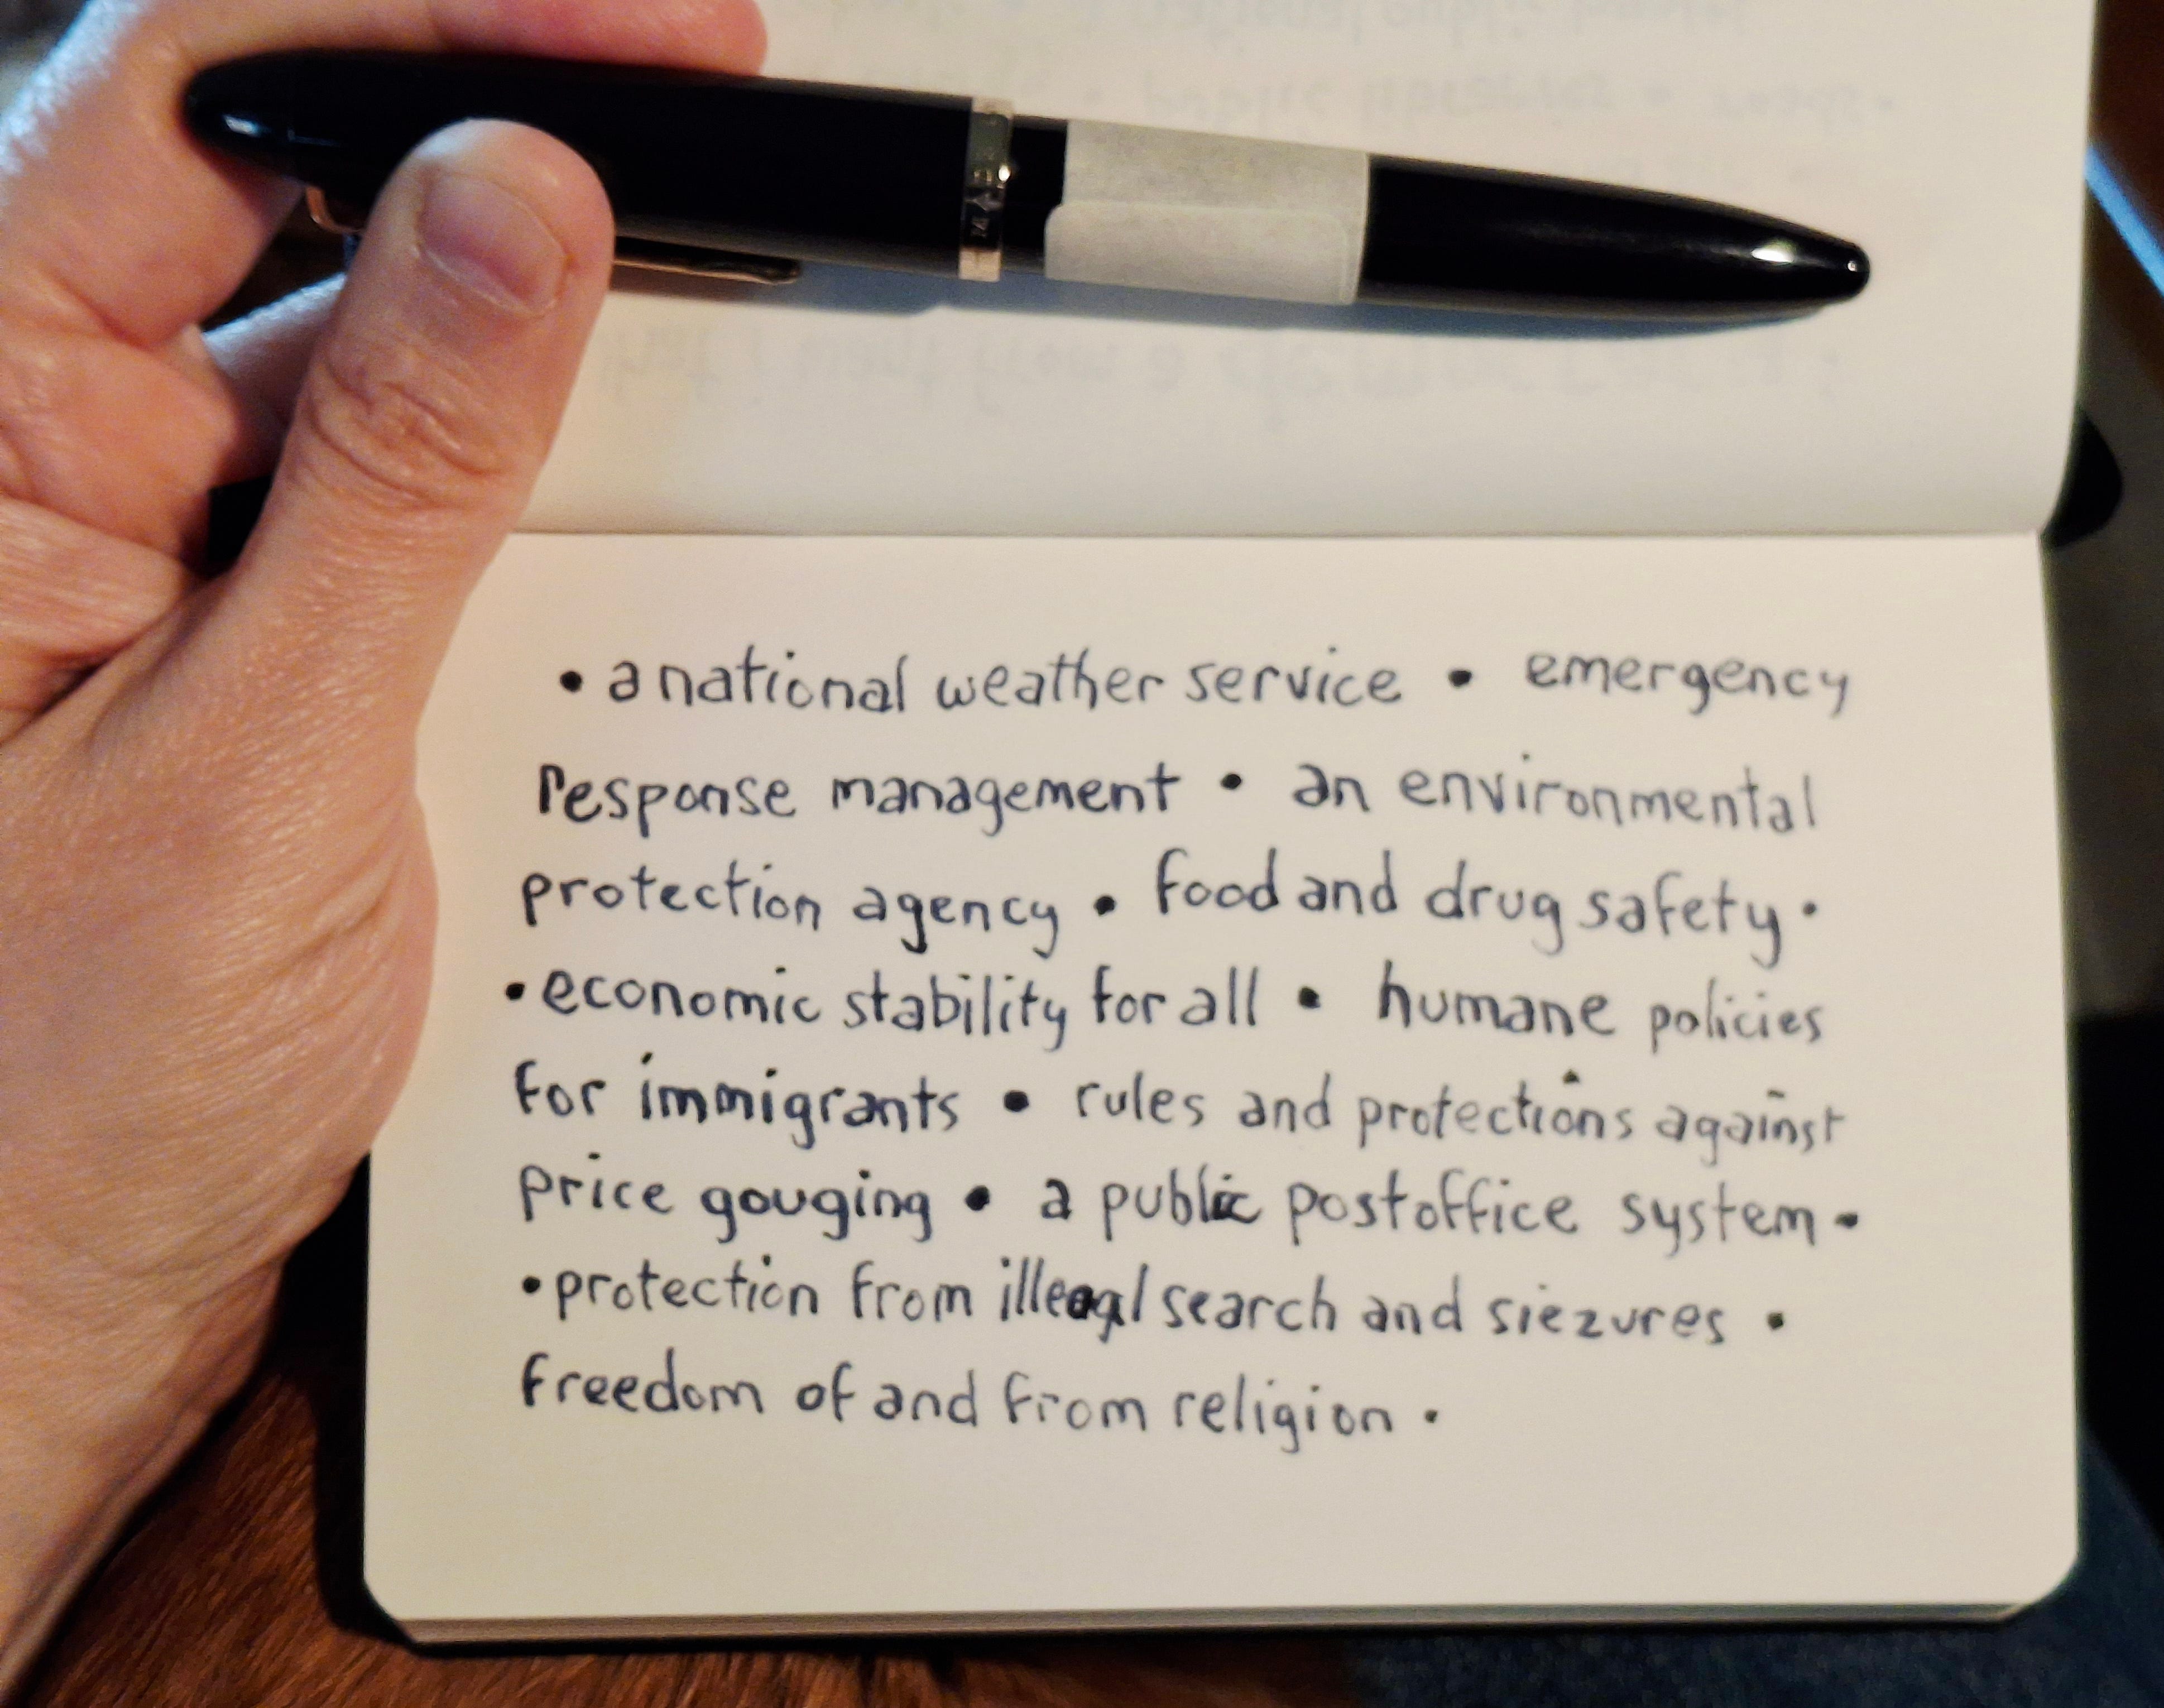 • a national weather service • emergency
response management • an environmental
protection agency • food and drug safety •
• economic stability for all • humane policies
for immigrants • rules and protections against
price gouging • a public postoffice system •
• protection from illegal search and siezures •
freedom of and from religion •